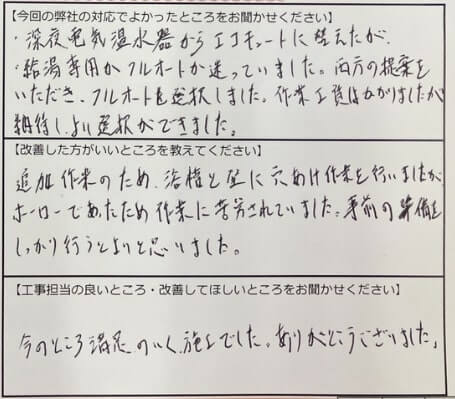 【今回の弊社の対応でよかったところをお聞かせください】
・深夜電気温水器からエコキュートに替えたが、
・給湯専用かフルオートか迷っていました。両方の提案を
いただき、フルオートを選択しました。作業工賃はかかりましたが
納得しよい選択ができました。
【改善した方がいいところを教えてください】
追加作業のため、浴槽と壁に穴あけ作業を行いましたが
ホーローであったため作業に苦労されていました。事前の準備を
しっかり行うとよいと思いました。
【工事担当の良いところ・改善してほしいところをお聞かせください】
今のところ満足のいく施工でした。ありがとうございました。